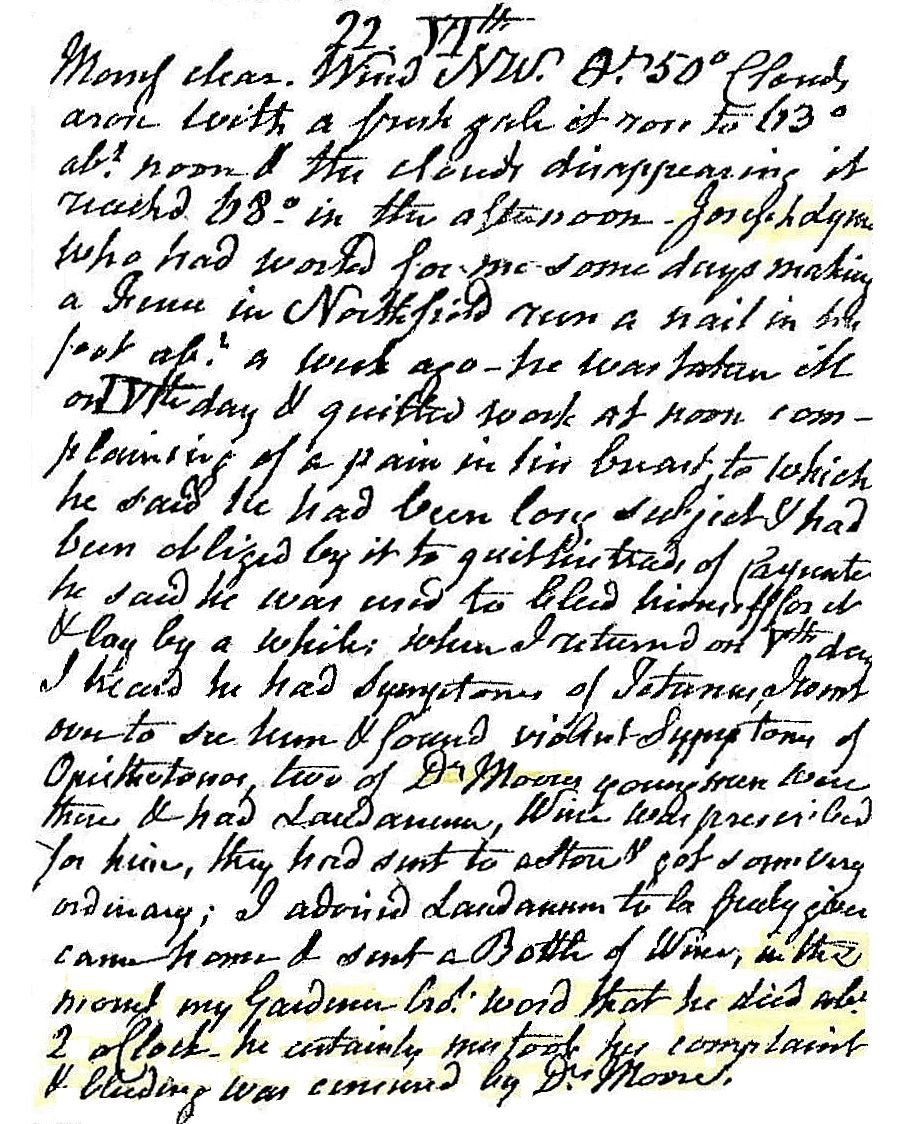 22 VIIth
Morng clear. Wind NW. Ar. 50° Clouds
arose with a fresh gale it rose to 63°
abt. noon & the clouds disappearing it
reachd 68° in the afternoon - Joseph Lyne
who had worked for me some days making
a Fence in Northfield run a nail in his
foot abt. a week ago - he was taken ill
on IVth day & quitted work at noon com-
plaining of a pain in his breast, to which
he said he had been long subject & had
been obliged by it to quit his trade of
he said he was used to bleed himself for it
& lay by a while; when I returnd on Vth day
I heard he had Symptoms of Tetanus, I went
over to see him & found violent Symptoms of
Opisthotonos, two of Dr Moores young men were
there & had Laudanum, Wine was prescribed
for him, they had sent to a store & got some very
ordinary; I advised Laudanum to be freely given
came home & sent a Bottle of Wine, in the
morng my Gardener brot. word that he died abt.
2 oClock - he certainly mistook his complaint
& bleeding was censured by Dr. Moore.